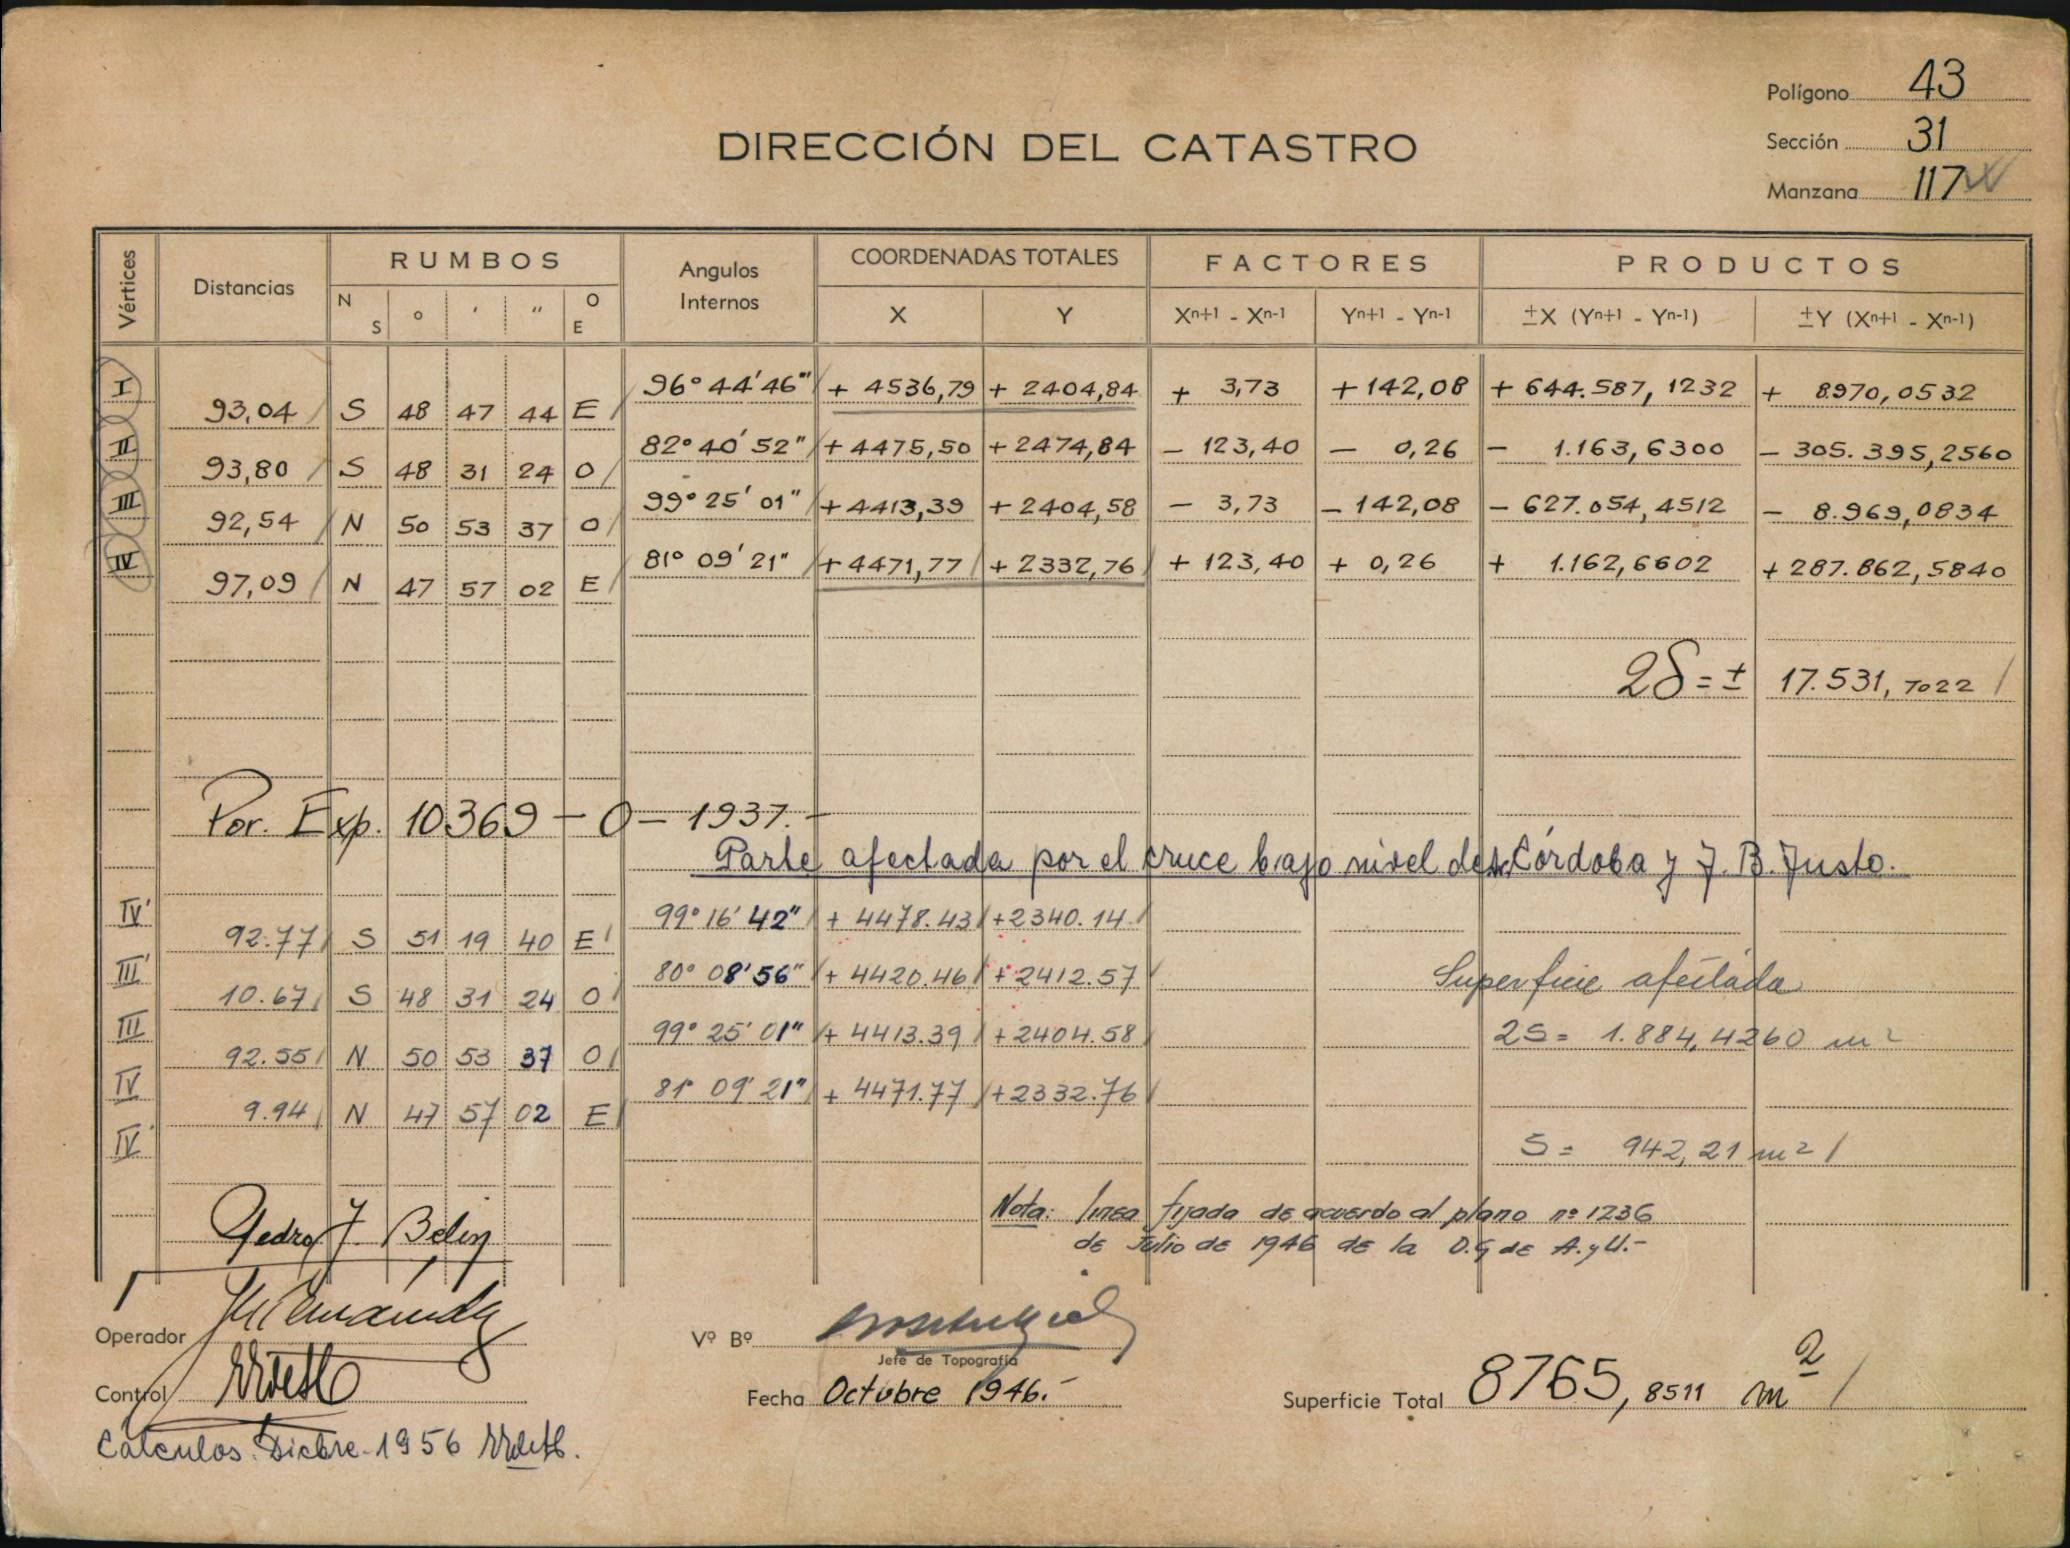 Polígono 43
Sección 31
Manzana 117
DIRECCIÓN DEL CATASTRO
Vértices Distancias RUMBOS Angulos Internos COORDENADAS TOTALES FACTORES PRODUCTOS
N S ° ' " O E X Y Xn+1 - Xn-1 Yn+1 - Yn-1 ±X (Yn+1 - Yn-1) ±Y (Xn+1 - Xn-1)
I 96° 44' 46" + 4536,79 + 2404,84 + 3,73 + 142,08 + 644.587,1232 + 8970,0532
93,04 S 48 47 44 E
II 82° 40' 52" + 4475,50 + 2474,84 - 123,40 - 0,26 - 1.163,6300 - 305.395,2560
93,80 S 48 31 24 O
III 99° 25' 01" + 4413,39 + 2404,58 - 3,73 - 142,08 - 627.054,4512 - 8.969,0834
92,54 N 50 53 37 O
IV 81° 09' 21" + 4471,77 + 2332,76 + 123,40 + 0,26 + 1.162,6602 + 287.862,5840
97,09 N 47 57 02 E
2S = ± 17.531,7022
Por. Exp. 10369 - O - 1937.-
Parte afectada por el cruce bajo nivel de Córdoba y J. B. Justo.
IV' 99° 16' 42" + 4478.43 + 2340.14
92.77 S 51 19 40 E
III' 80° 08' 56" + 4420.46 + 2412.57 Superficie afectada
10.67 S 48 31 24 O
III 99° 25' 01" + 4413.39 + 2404.58 2S = 1.884,4260 m2
92.55 N 50 53 37 O
IV 81° 09' 21" + 4471.77 + 2332.76
9.94 N 47 57 02 E
IV' S = 942,21 m2
Nota: línea fijada de acuerdo al plano nº 1236
de Julio de 1946 de la D.G de A. y U.-
Pedro J. Belin
Operador
Vº Bº
Jefe de Topografía
Control
Fecha Octubre 1946.-
Superficie Total 8765,8511 m2
Cálculos. Dicbre-1956